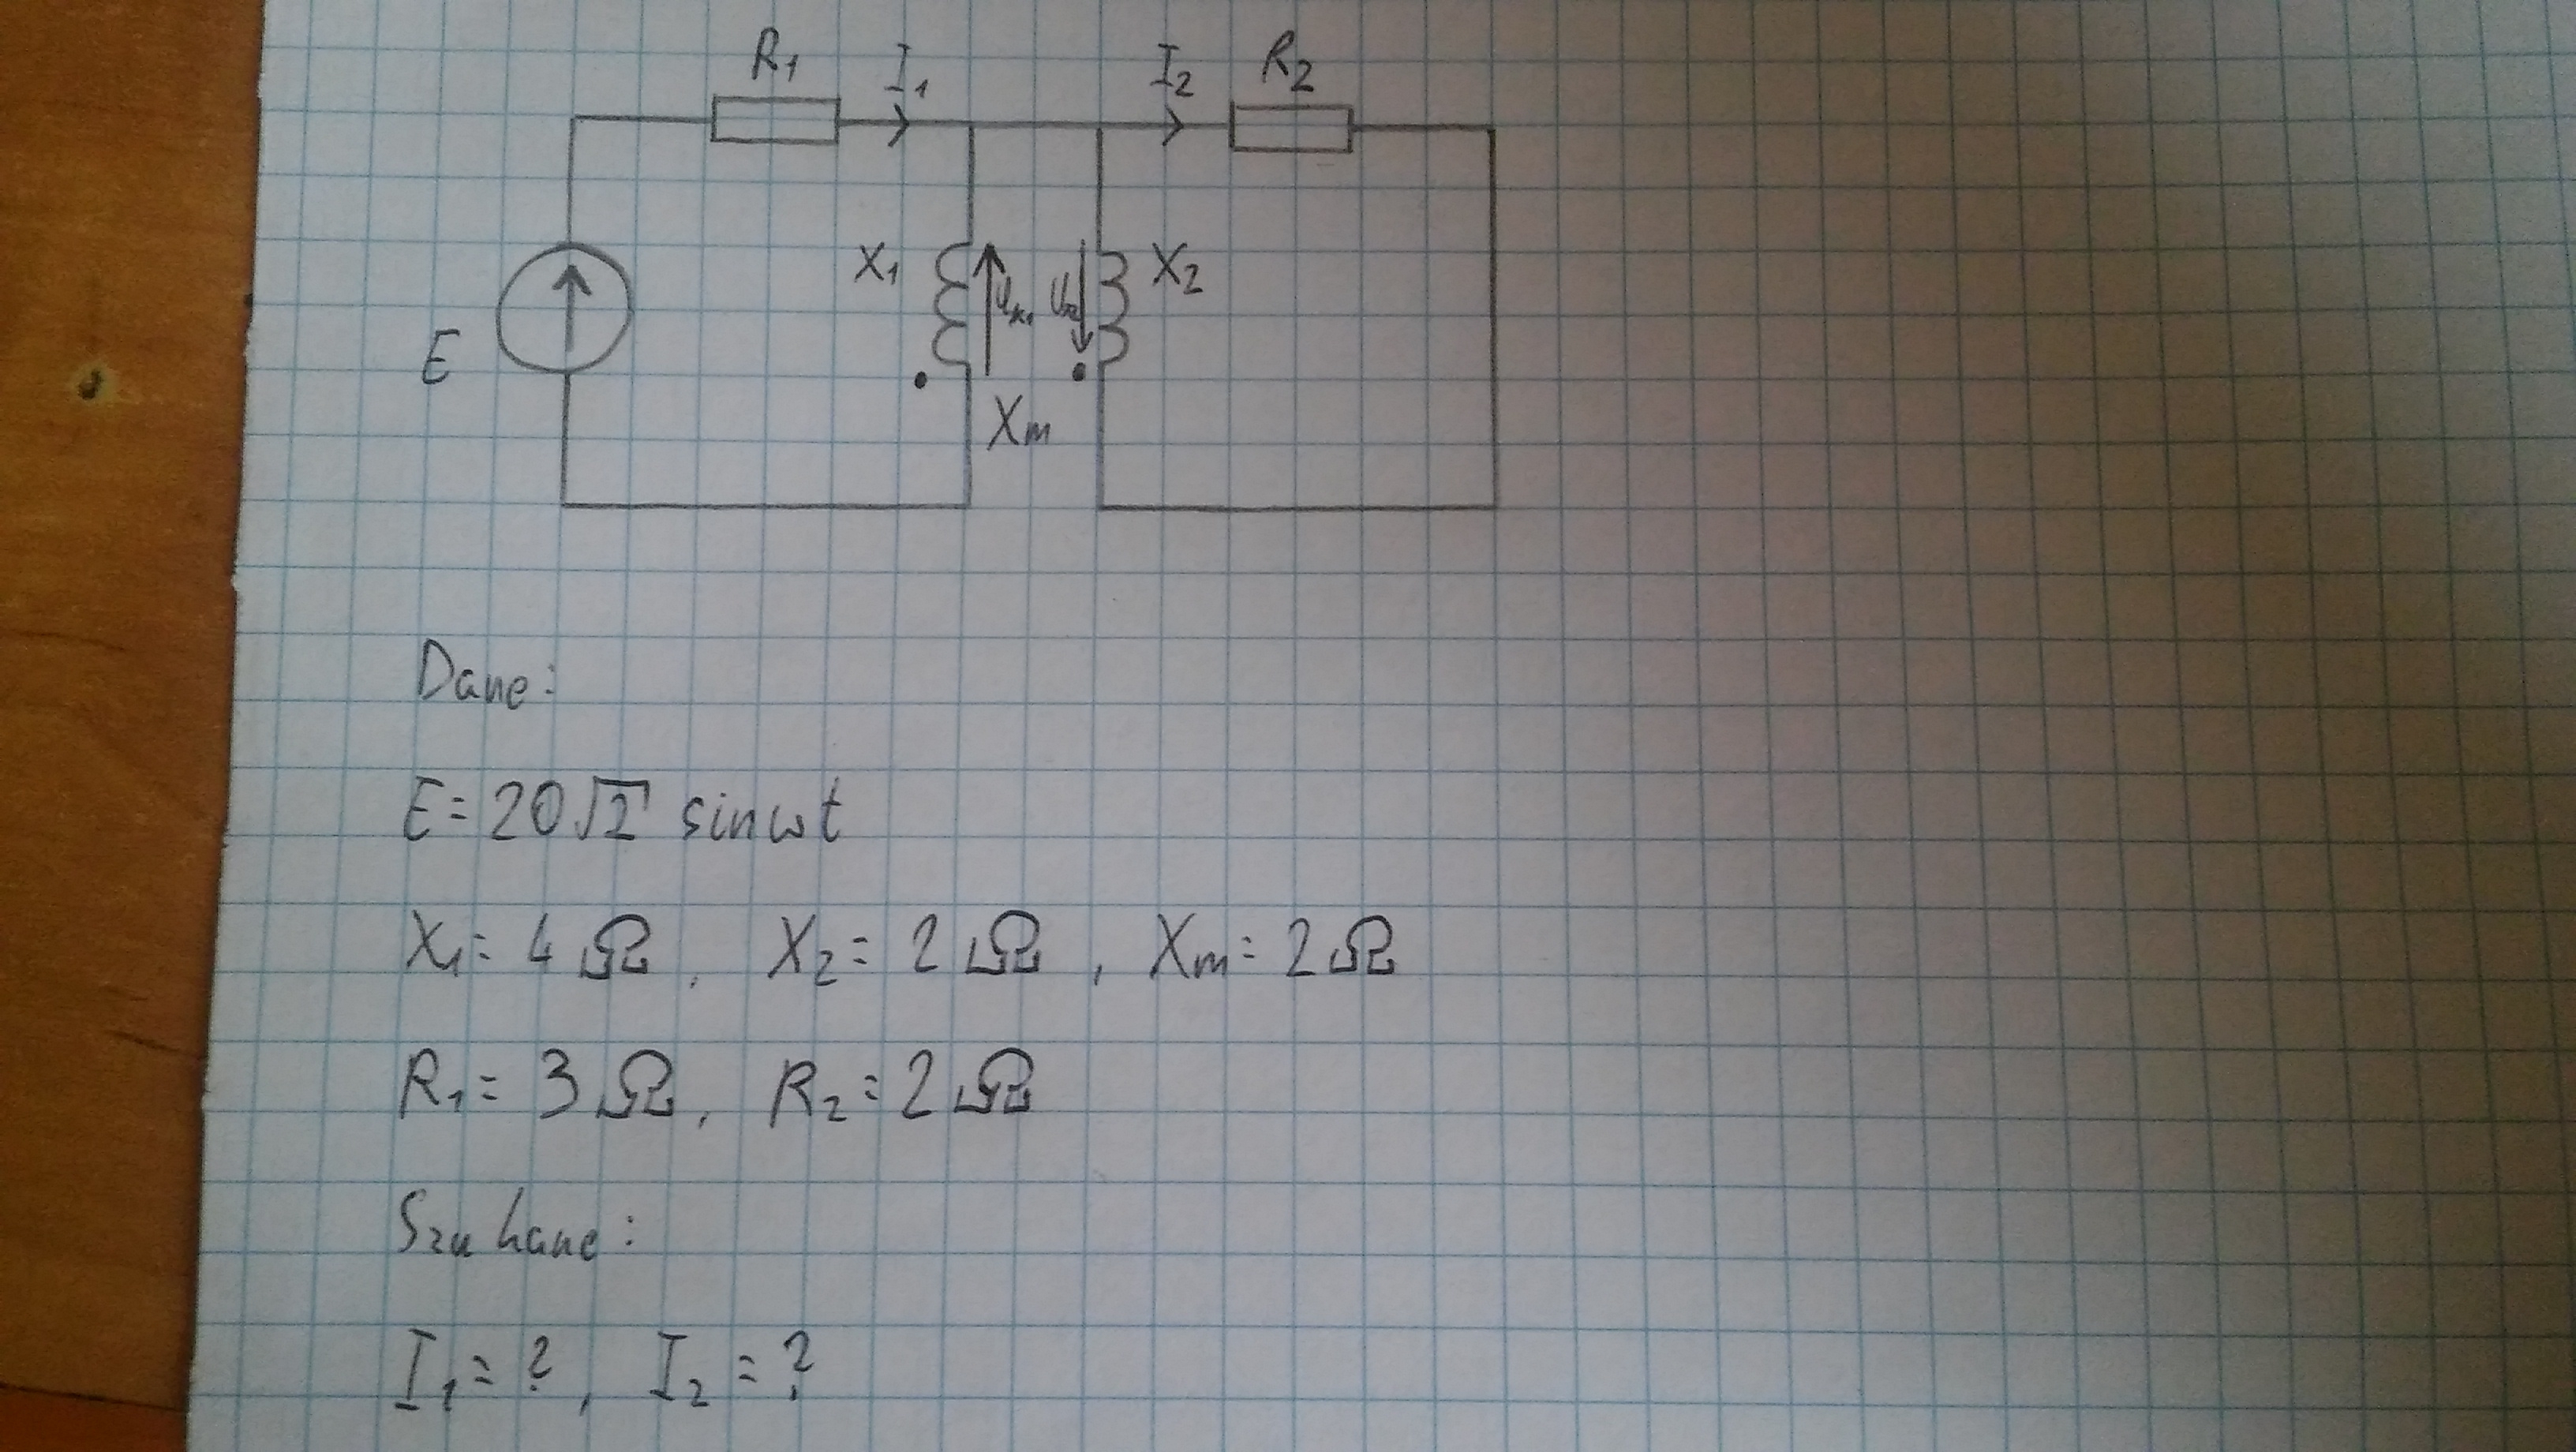 R₁ I₁ I₂ R₂
X₁ Uₓ₁ Uₓ₂ X₂
E
Xm
Dane:
E = 20√2 sinωt
X₁ = 4 Ω, X₂ = 2 Ω, Xm = 2 Ω
R₁ = 3 Ω, R₂ = 2 Ω
Szukane:
I₁ = ?, I₂ = ?